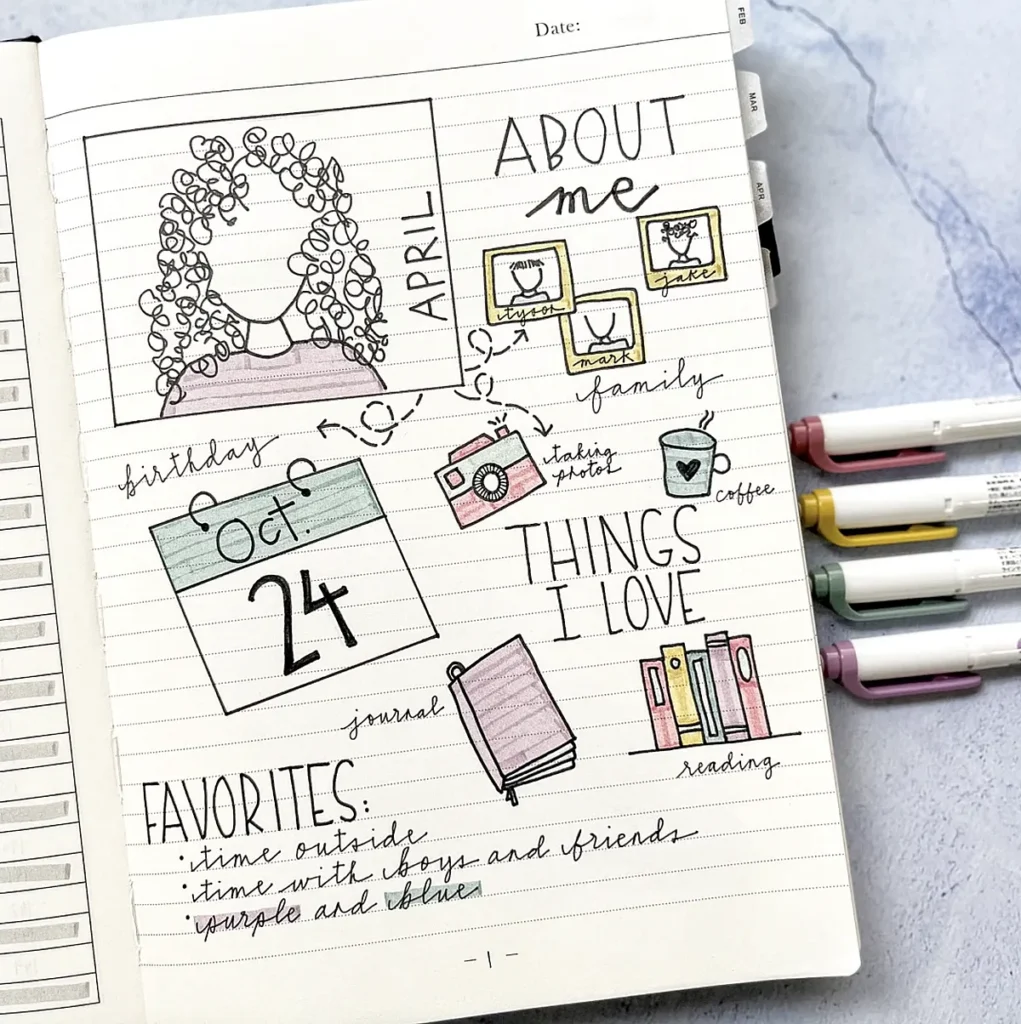 Date:
FEB
MAR
APR
ABOUT
me
APRIL
tyson
jake
mark
family
birthday
taking
photos
coffee
Oct.
24
THINGS
I LOVE
journal
reading
FAVORITES:
• time outside
• time with boys and friends
• purple and blue
- 1 -